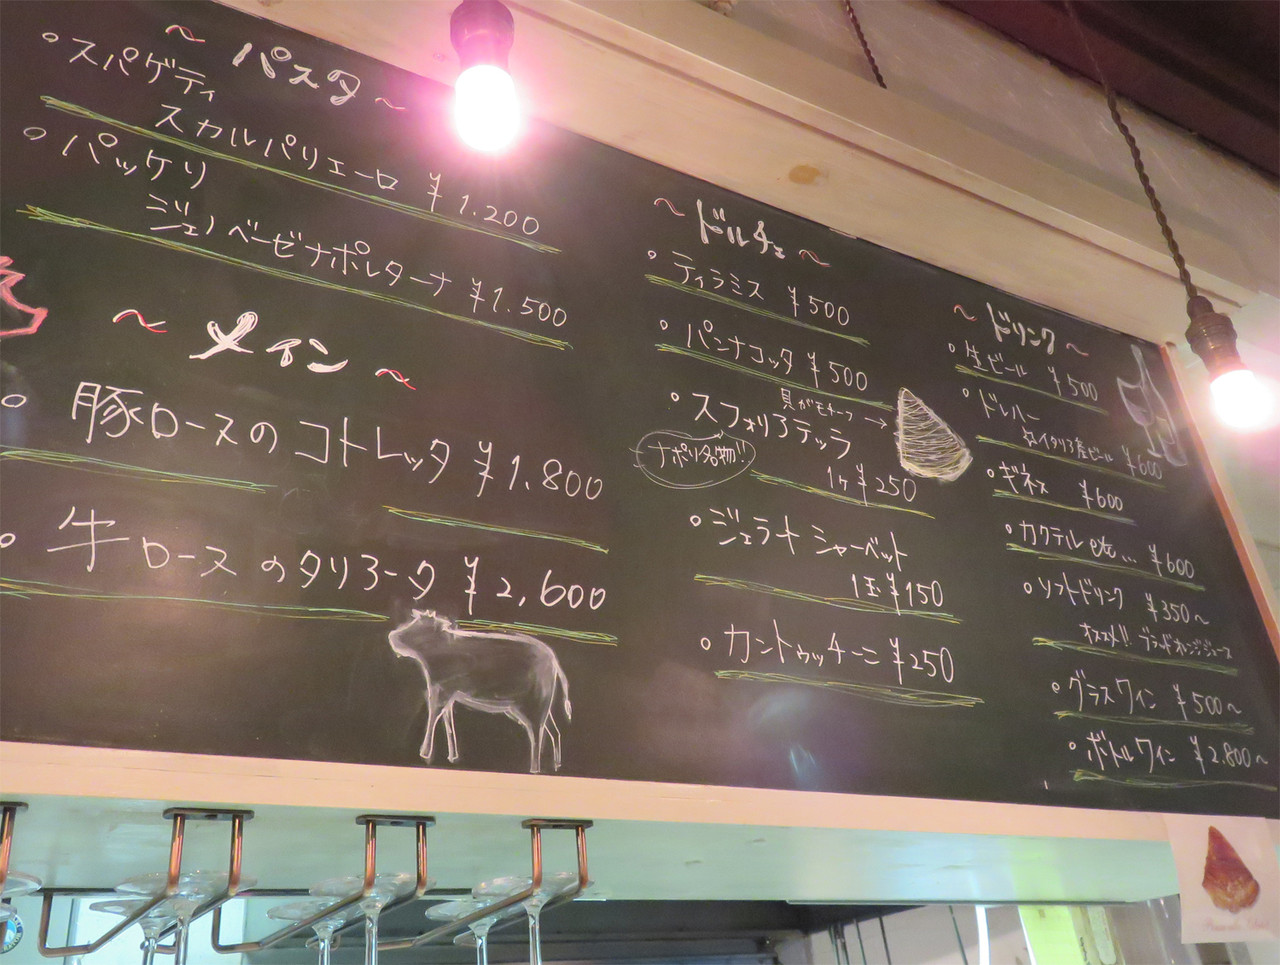 ～パスタ～
○スパゲティ
スカルパリエーロ ¥1.200
○パッケリ
ジェノベーゼナポレターナ ¥1.500
～メイン～
○豚ロースのコトレッタ ¥1.800
○牛ロースのタリアータ ¥2,600
～ドルチェ～
○ティラミス ¥500
○パンナコッタ ¥500
貝がモチーフ→
○スフォリアテッラ
ナポリ名物!!
1ケ ¥250
○ジェラート シャーベット
1玉 ¥150
○カントゥッチーニ ¥250
～ドリンク～
○生ビール ¥500
○ドレハー
イタリア産ビール ¥600
○ギネス ¥600
○カクテル etc... ¥600
○ソフトドリンク ¥350～
オススメ!! ブラッドオレンジジュース
○グラスワイン ¥500～
○ボトルワイン ¥2.800～